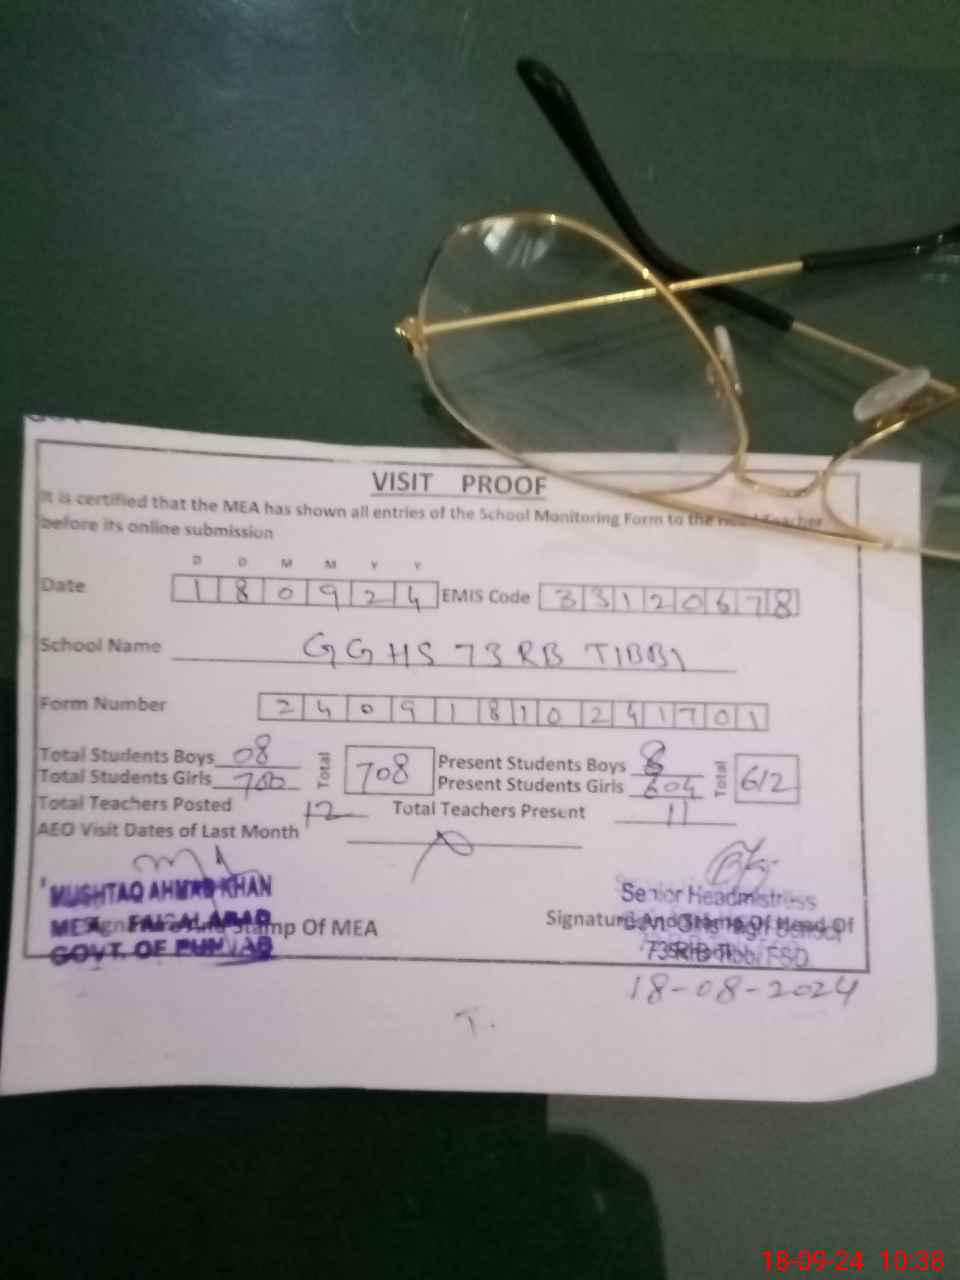 VISIT PROOF
It is certified that the MEA has shown all entries of the School Monitoring Form to the Head Teacher
before its online submission
D D M M Y Y
Date 180924 EMIS Code 33120678
School Name GGHS 73 RB TIBBI
Form Number 24091810241701
Total Students Boys 08 Total 708 Present Students Boys 8 Total 612
Total Students Girls 700 Present Students Girls 604
Total Teachers Posted 12 Total Teachers Present 11
AEO Visit Dates of Last Month
MUSHTAQ AHMAD KHAN
MEA FAISALABAD
GOVT. OF PUNJAB
Signature And Stamp Of MEA
Senior Headmistress
Signature And Stamp Of Head Of
Govt. Girls High School
73 R/B Tibbi FSD
18-08-2024
T.
18-09-24 10:38